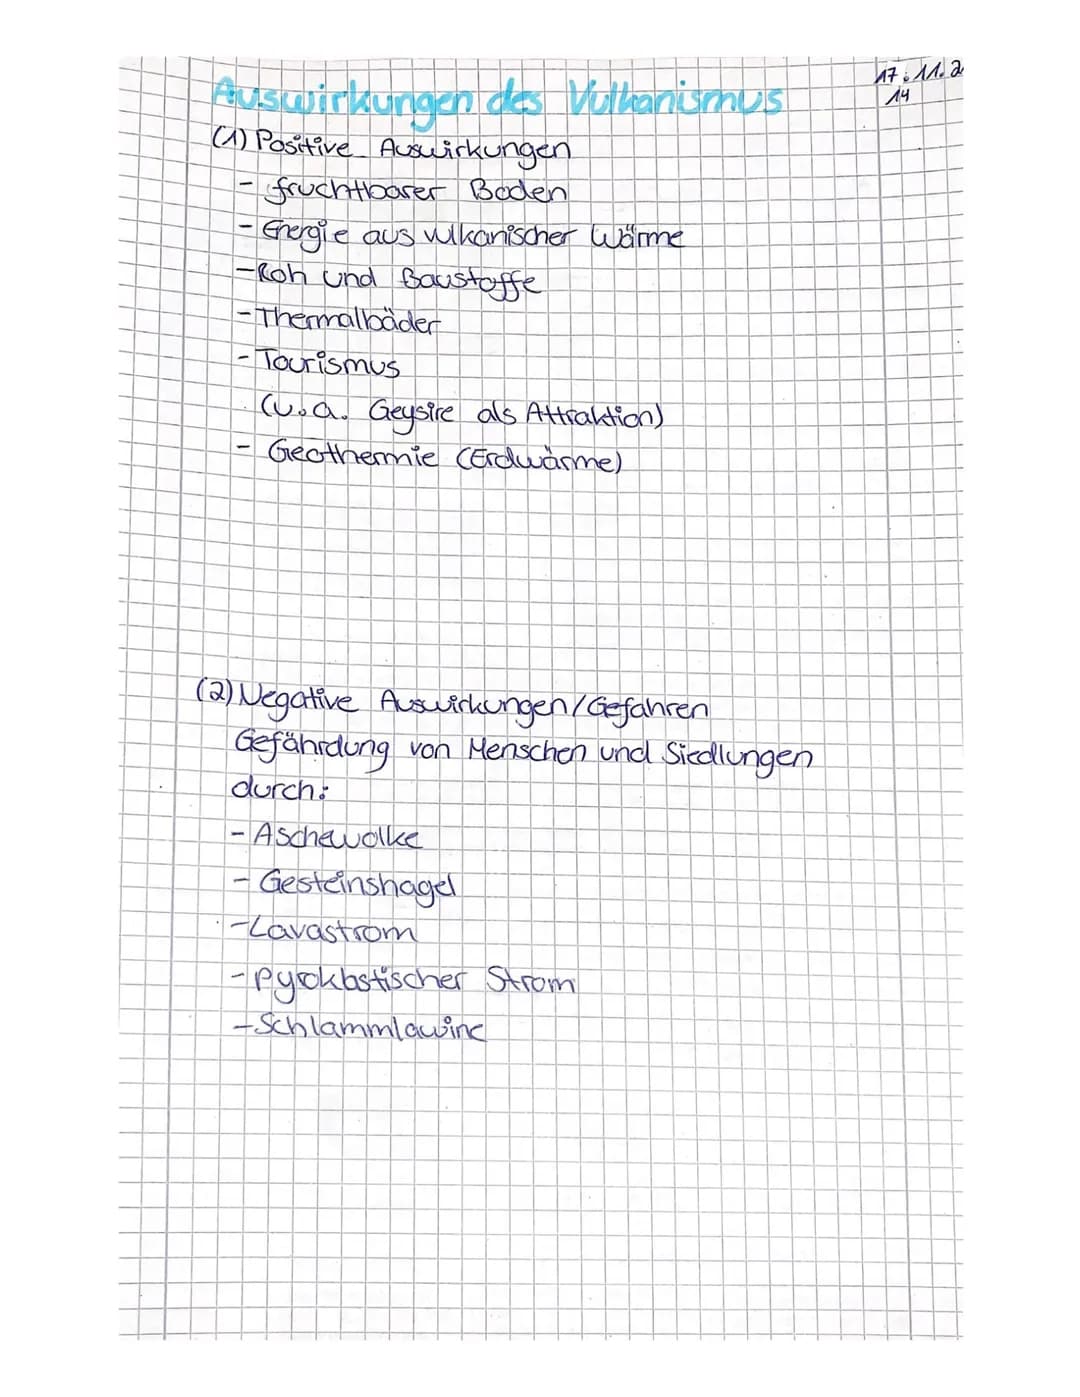 17.11.2
14
Auswirkungen des Vulkanismus
(1) Positive Auswirkungen
- fruchtbarer Boden
- Energie aus vulkanischer Wärme
- Roh und Baustoffe
- Thermalbäder
- Tourismus
(u.a. Geysire als Attraktion)
- Geothermie (Erdwärme)
(2) Negative Auswirkungen/Gefahren
Gefährdung von Menschen und Siedlungen
durch:
- Aschewolke
- Gesteinshagel
- Lavastrom
- pyroklastischer Strom
- Schlammlawine